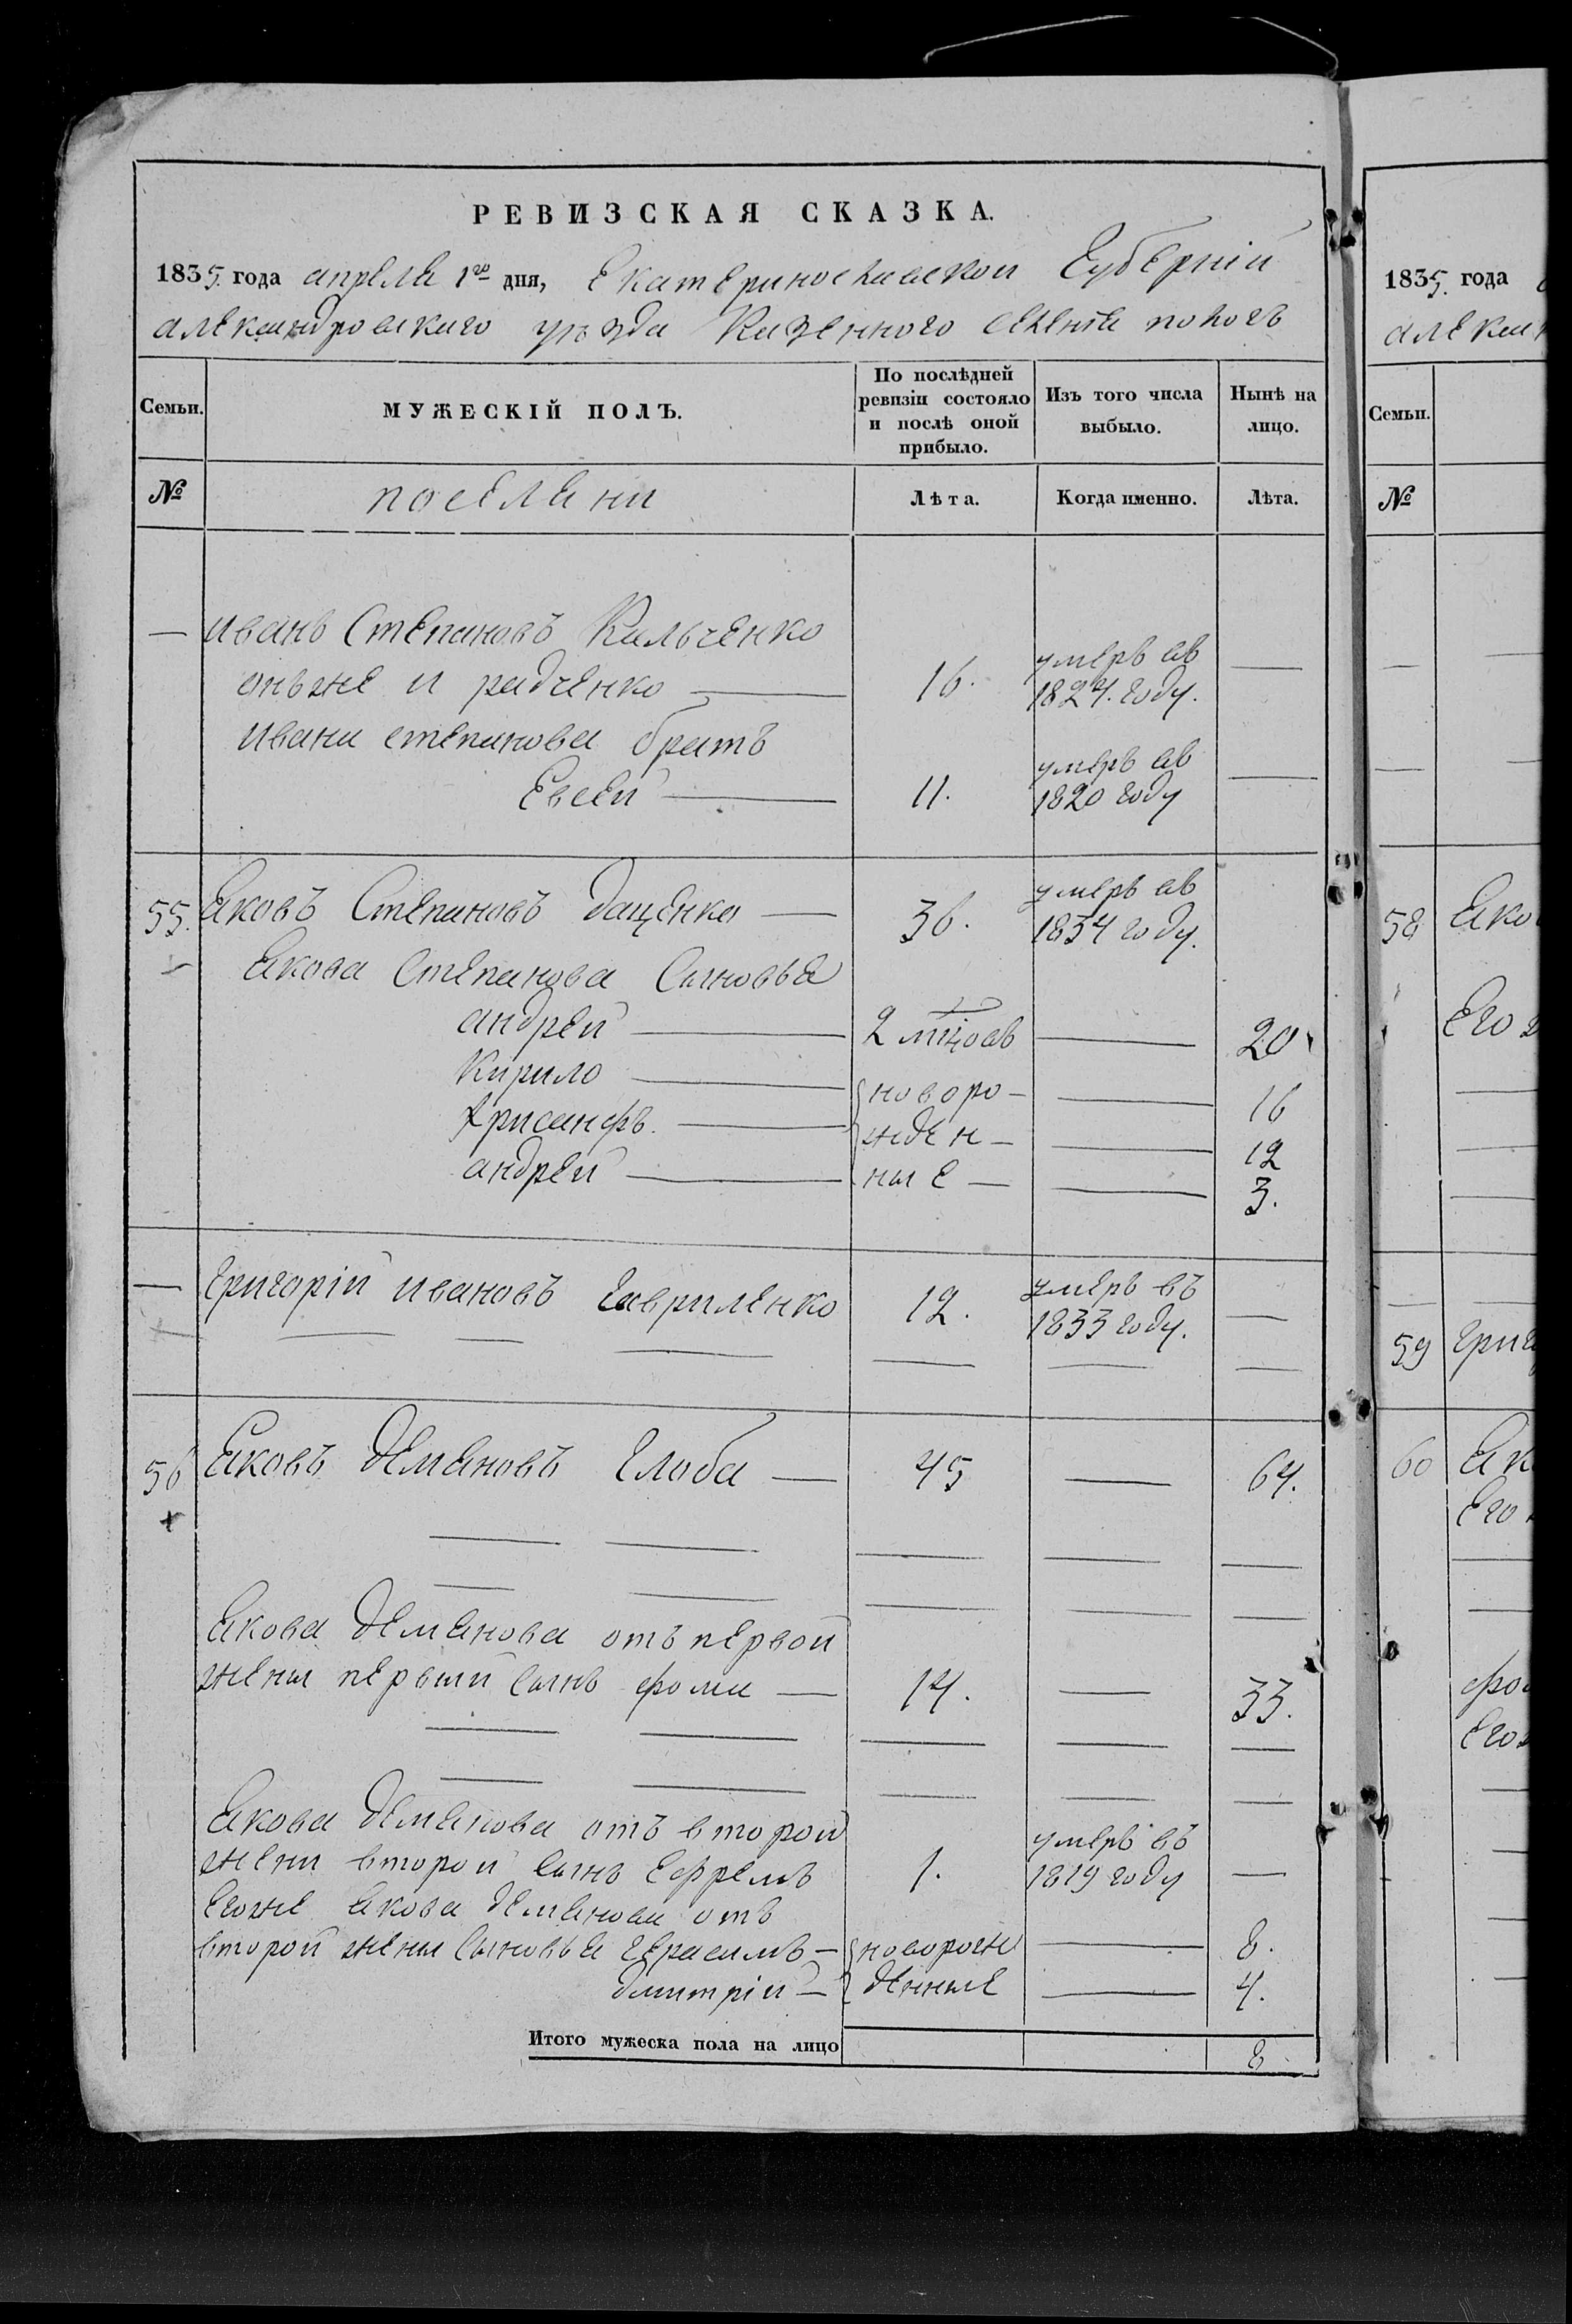 РЕВИЗСКАЯ СКАЗКА.
1835. года апреля 1го дня, Екатеринославской Губерній
александровскаго уѣзда Казенного селенія пологъ
Семьи. МУЖЕСКІЙ ПОЛЪ. По послѣдней ревизіи состояло и послѣ оной прибыло. Изъ того числа выбыло. Нынѣ на лицо.
№ поселяни Лѣта. Когда именно. Лѣта.
— Иванъ Степановъ Кальченко
онъже и радченко — 16. умеръ въ 1824. году. —
Ивана степанова братъ
Евсей — 11. умеръ въ 1820 году —
55. Яковъ Степановъ дащенко — 36. умеръ въ 1834 году.
Якова Степанова Сыновья
андрей — 2 — 20
Кирило — новоро- — 16
Хрисанфъ. — жден- — 12
андрей — ные — — 3.
— Григорій ивановъ гавриленко 12. умеръ въ 1833 году. —
56 Яковъ демяновъ Глоба — 45 — 64.
Якова демянова отъ первой
жены первый сынъ фома — 14. — 33.
Якова демянова отъ второй
жени второй сынъ Ефремъ 1. умеръ въ 1819 году —
Егоже якова демянова отъ
второй жены сыновья герасимъ — новорож — 8.
дмитрій — денные — 4.
Итого мужеска пола на лицо 8
1835. года
алексан
Семьи.
№
58 Яко
Его
59 григ
60 Як
Его
фо
Его